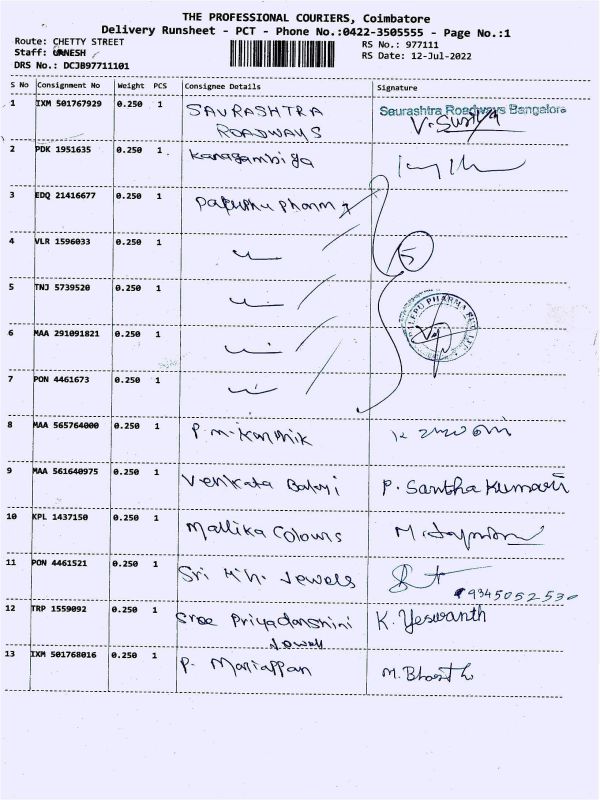 THE PROFESSIONAL COURIERS, Coimbatore
Delivery Runsheet - PCT - Phone No.:0422-3505555 - Page No.:1
Route: CHETTY STREET
RS No.: 977111
Staff: GANESH
RS Date: 12-Jul-2022
DRS No.: DCJB97711101
S No Consignment No Weight PCS Consignee Details Signature
1 IXM 501767929 0.250 1 SAURASHTRA Saurashtra Roadways Bangalore
ROADWAYS V. Suriya
2 PDK 1951635 0.250 1 Kanagambiga
3 EDQ 21416677 0.250 1 Pharm
4 VLR 1596033 0.250 1 5
5 TNJ 5739520 0.250 1
6 MAA 291091821 0.250 1
7 PON 4461673 0.250 1
8 MAA 565764000 0.250 1 P.M. Karthik
9 MAA 561640975 0.250 1 Venkata Balaji P. Santha Kumari
10 KPL 1437150 0.250 1 Mallika Colours
11 PON 4461521 0.250 1 Sri Jewels
12 TRP 1559092 0.250 1 Sree Priyadarshini K. Yeswanth
Jewel
13 IXM 501768016 0.250 1 P. Mariappan M. Bharath